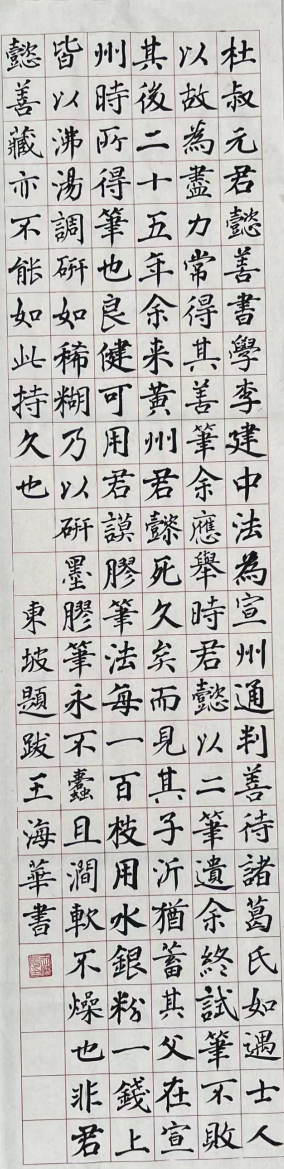 杜叔元君懿善書學李建中法為宣州通判善待諸葛氏如遇士人
以故為盡力常得其善筆余應舉時君懿以二筆遺余終試筆不敗
其後二十五年余来黃州君懿死久矣而見其子沂猶蓄其父在宣
州時所得筆也良健可用君謨膠筆法每一百枝用水銀粉一錢上
皆以沸湯調研如稀糊乃以研墨膠筆永不蠹且潤軟不燥也非君
懿善藏亦不能如此持久也 東坡題跋王海華書